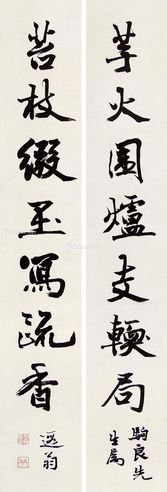 芋火圍爐支輭局
駒良先
生屬
苔枝綴玉寫疏香
遐翁